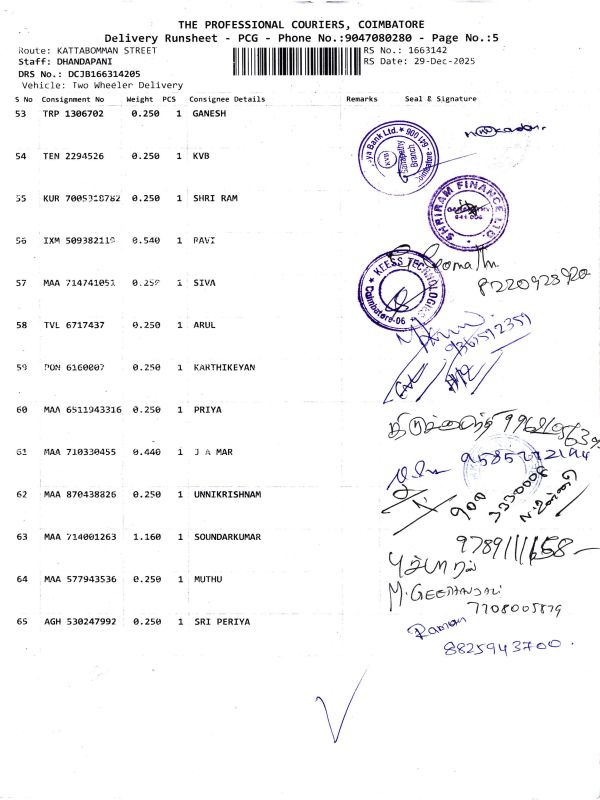 THE PROFESSIONAL COURIERS, COIMBATORE
Delivery Runsheet - PCG - Phone No.:9047080280 - Page No.:5
Route: KATTABOMMAN STREET RS No.: 1663142
Staff: DHANDAPANI RS Date: 29-Dec-2025
DRS No.: DCJB166314205
Vehicle: Two Wheeler Delivery
S No Consignment No Weight PCS Consignee Details Remarks Seal & Signature
53 TRP 1306702 0.250 1 GANESH
54 TEN 2294526 0.250 1 KVB
Bank Ltd. * 641 006
KVB Ganapathy Branch
55 KUR 7005918782 0.250 1 SHRI RAM
SHRIRAM FINANCE LTD.
56 IXM 509382119 0.540 1 PAVI
57 MAA 714741051 0.250 1 SIVA
8220928920
* KEESS TECHNOLOGIES *
Coimbatore-06
58 TVL 6717437 0.250 1 ARUL
9361592359
59 PON 6160007 0.250 1 KARTHIKEYAN
60 MAA 6511943316 0.250 1 PRIYA
61 MAA 710330455 0.440 1 J A MAR
9585772194
62 MAA 870438826 0.250 1 UNNIKRISHNAM
900
3330006
63 MAA 714001263 1.160 1 SOUNDARKUMAR
9789111658
64 MAA 577943536 0.250 1 MUTHU
M. GEETHANJALI
7708005879
65 AGH 530247992 0.250 1 SRI PERIYA
Raman
8825943700.